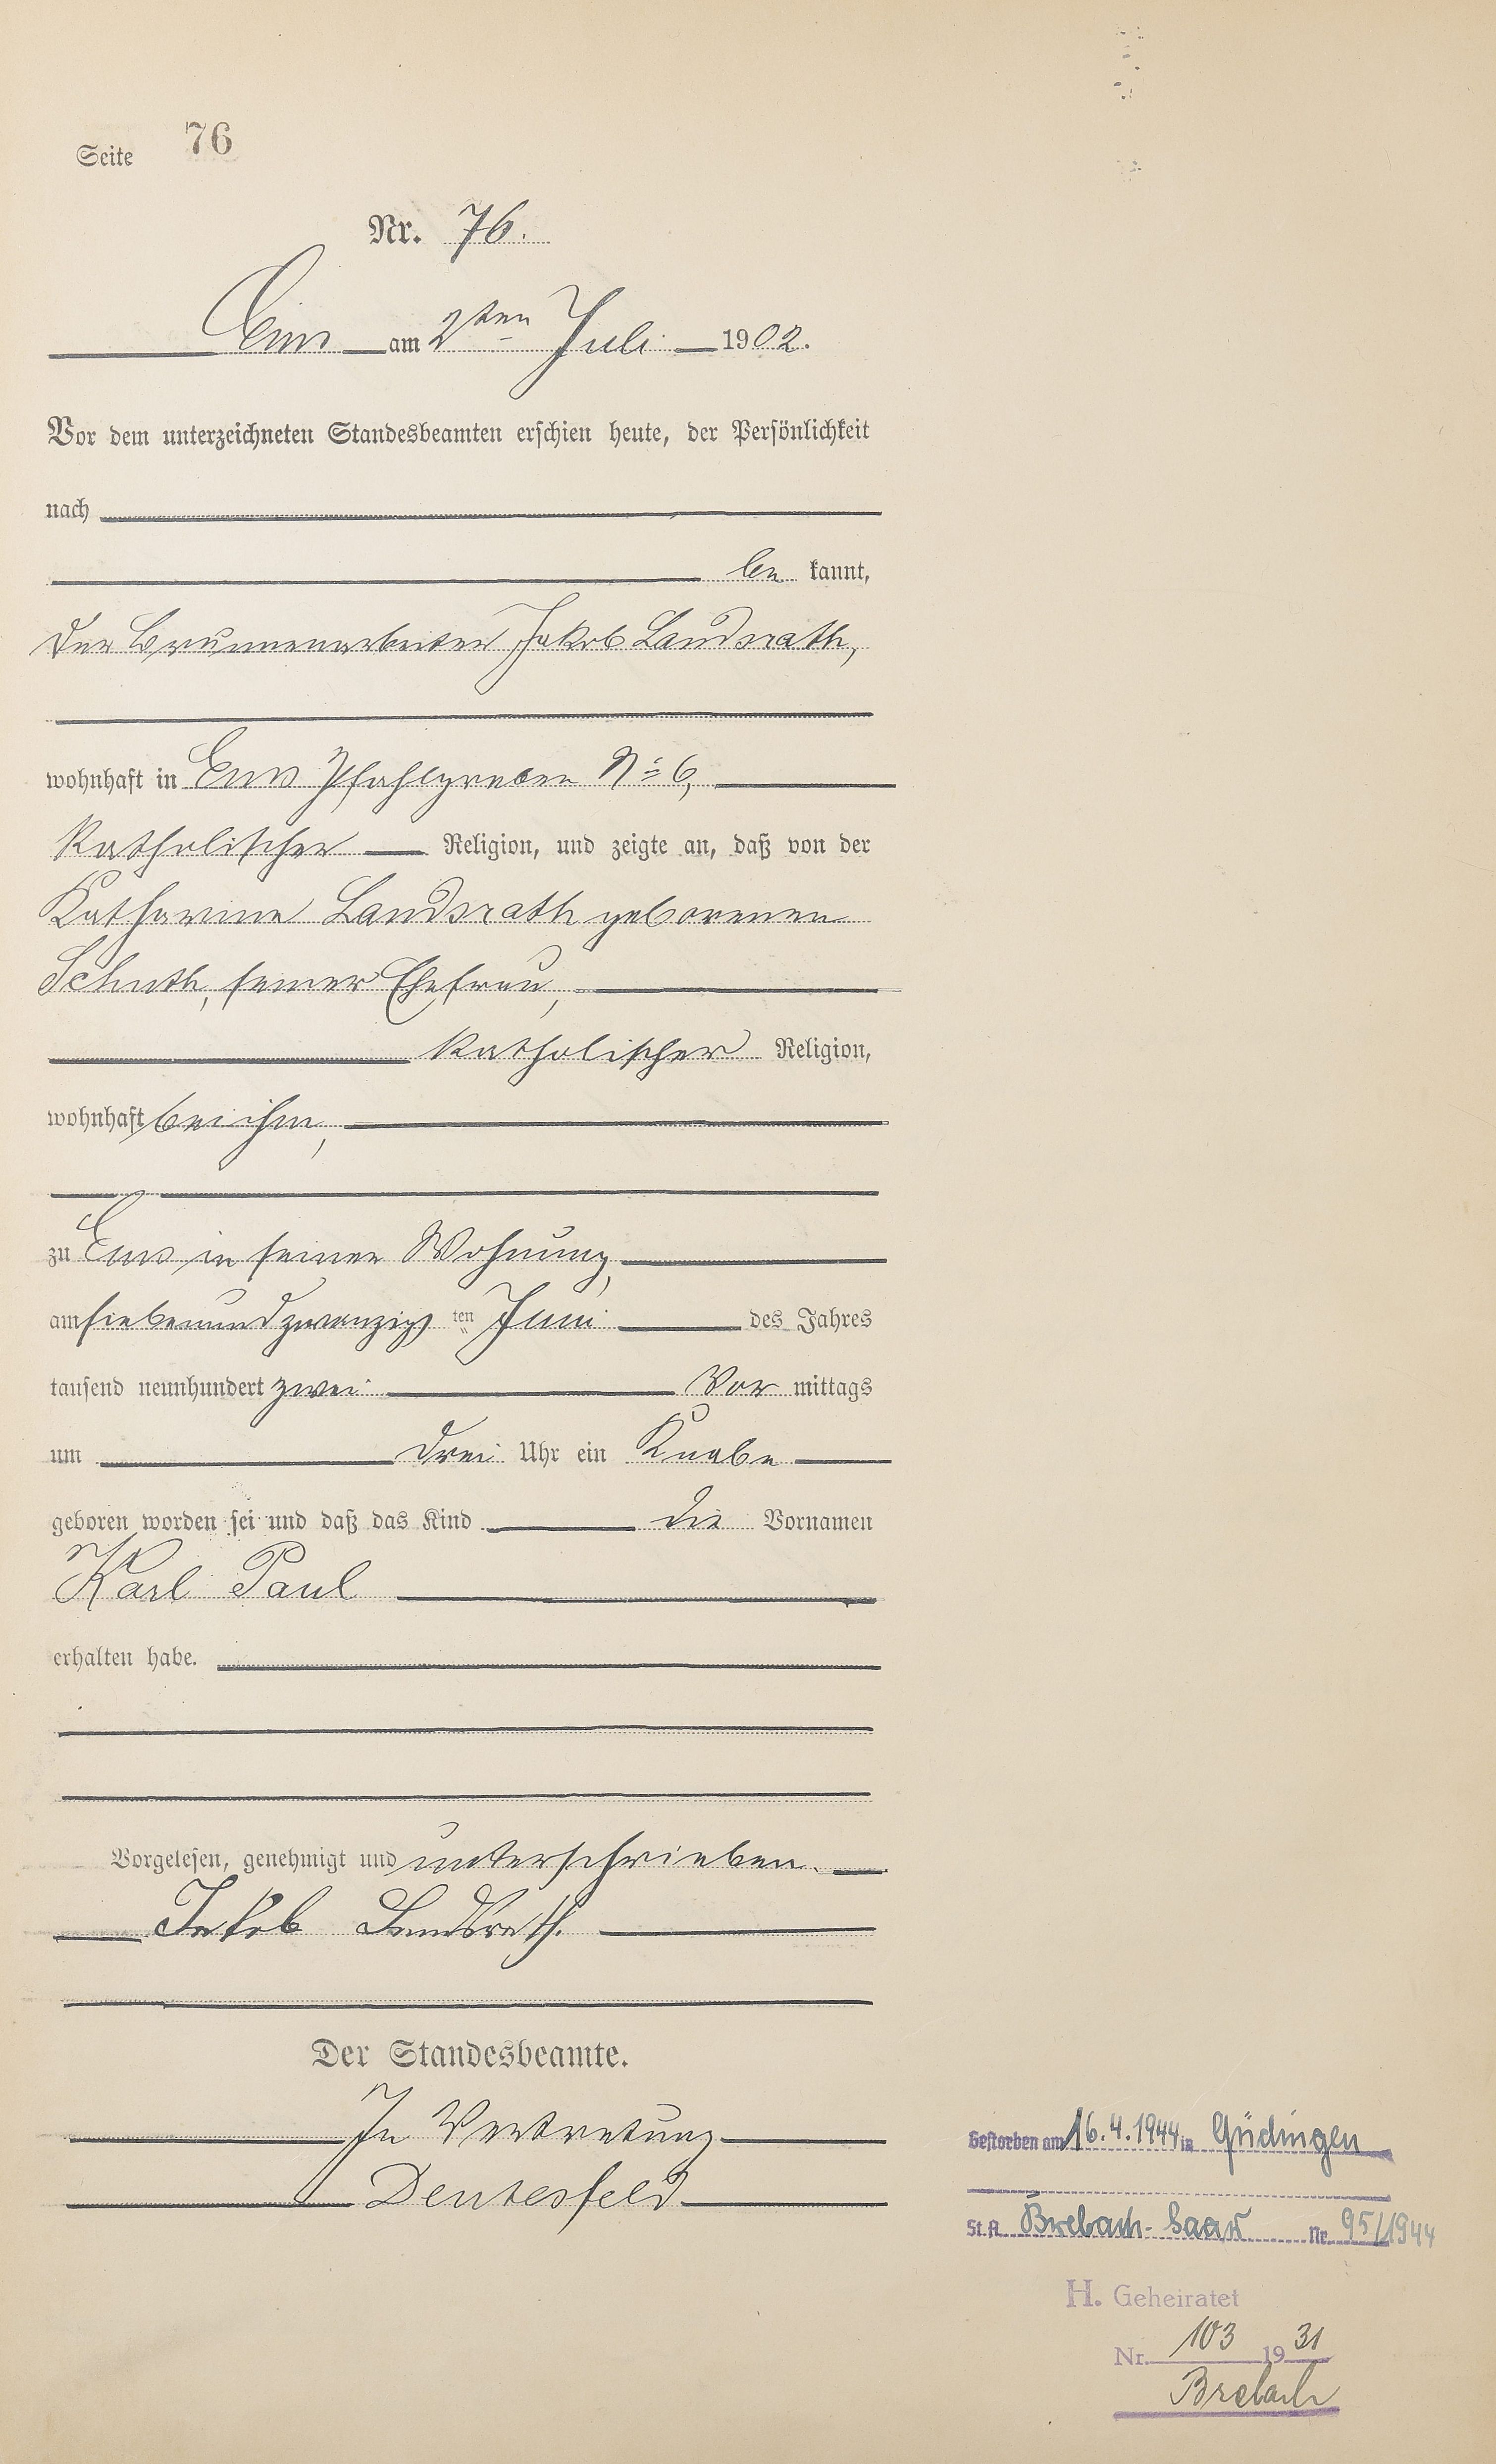 Seite 76
Nr. 76.
Ems am 2ten Juli 1902.
Vor dem unterzeichneten Standesbeamten erschien heute, der Persönlichkeit
nach
be kannt,
der Brunnenarbeiter Jakob Landsrath,
wohnhaft in Ems Pfahlgraben No 6,
katholischer Religion, und zeigte an, daß von der
Katharina Landsrath geborenen
Schuth, seiner Ehefrau,
katholischer Religion,
wohnhaft bei ihm,
zu Ems in seiner Wohnung,
am siebenundzwanzigsten Juni des Jahres
tausend neunhundert zwei Vor mittags
um drei Uhr ein Knabe
geboren worden sei und daß das Kind die Vornamen
Karl Paul
erhalten habe.
Vorgelesen, genehmigt und unterschrieben.
Jakob Landsrath.
Der Standesbeamte.
In Vertretung
Deutesfeld
Gestorben am 16.4.1944 in Güdingen
St.A. Brebach-Saar Nr. 95/1944
H. Geheiratet
Nr. 103 1931
Brebach